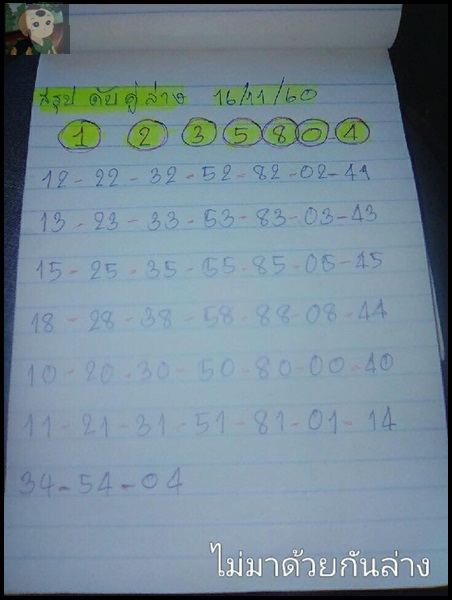 สรุป ดับ คู่ ล่าง 16/11/60
1 2 3 5 8 0 4
12-22-32-52-82-02-44
13-23-33-53-83-03-43
15-25-35-55-85-05-45
18-28-38-58-88-08-44
10-20-30-50-80-00-40
11-21-31-51-81-01-14
34-54-04
ไม่มาด้วยกันล่าง